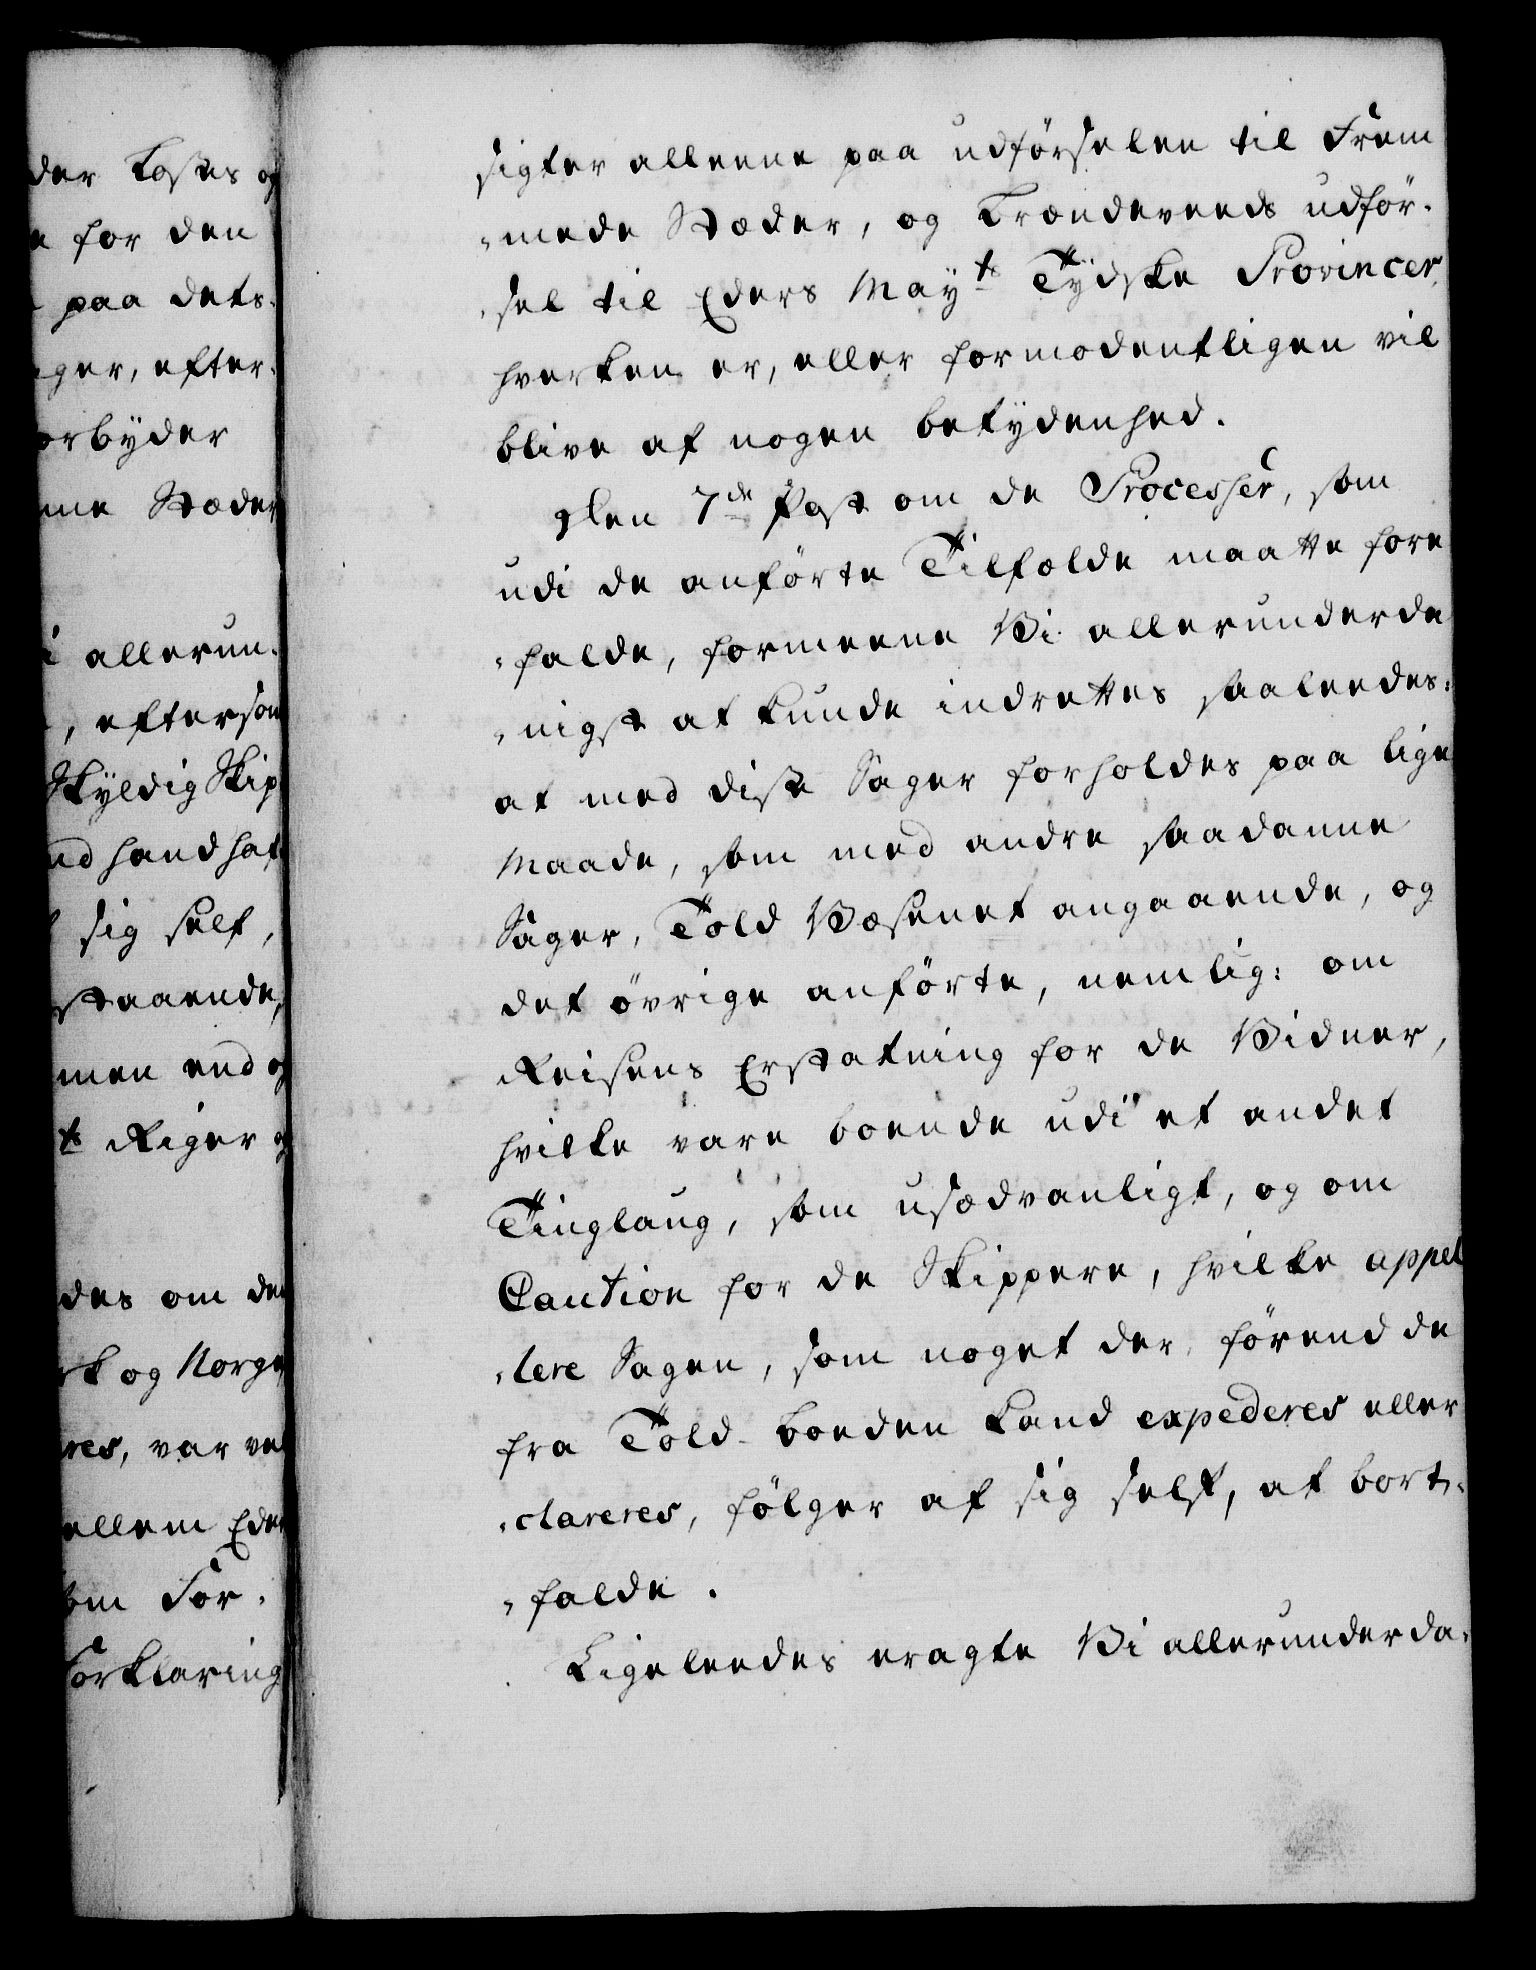 der Kostes og
for den
paa dets-
ger, efter-
orbyder
ne Stæder
allerun-
, eftersom
Skyldig Skip
nd hand haf
sig self,
staaende,
men end og
ts Riger og
des om den
rk og Norge
res, var ve
ellem Eder
om For-
Forklaring
sigter alleene paa udförselen til Frem
-mede Stæder, og Brændeveeds udför-
-sel til Eders Mayts Tydske Provincer,
hverken er, eller formodentligen vil
blive af nogen betydenhed.
Den 7de Post om de Processer, som
udi de anförte Tilfælde maatte fore
-falde, formeene Vi allerunderda
-nigst at kunde indrettes saaleedes:
at med disse Sager forholdes paa lige
Maade, som med andre saadanne
Sager, Told Væsenet angaaende, og
det övrige anförte, nemlig: om
Reisens Erstatning for de Vidner,
hvilke vare boende udi et andet
Tinglaug, som usædvanligt, og om
Caution for de Skippere, hvilke appel
-lere Sagen, som noget der, förend de
fra Told-boeden kand expederes eller
-clareres, fölger af sig self, at bort-
-falde.
Ligeleedes eragte Vi allerunderda-